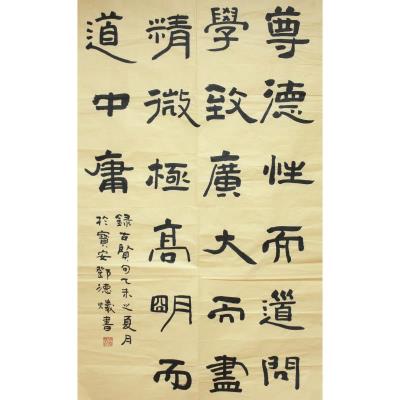 尊德性而道問
學致廣大而盡
精微極高明而
道中庸
錄古賢句乙未之夏月
於寶安鄧德書